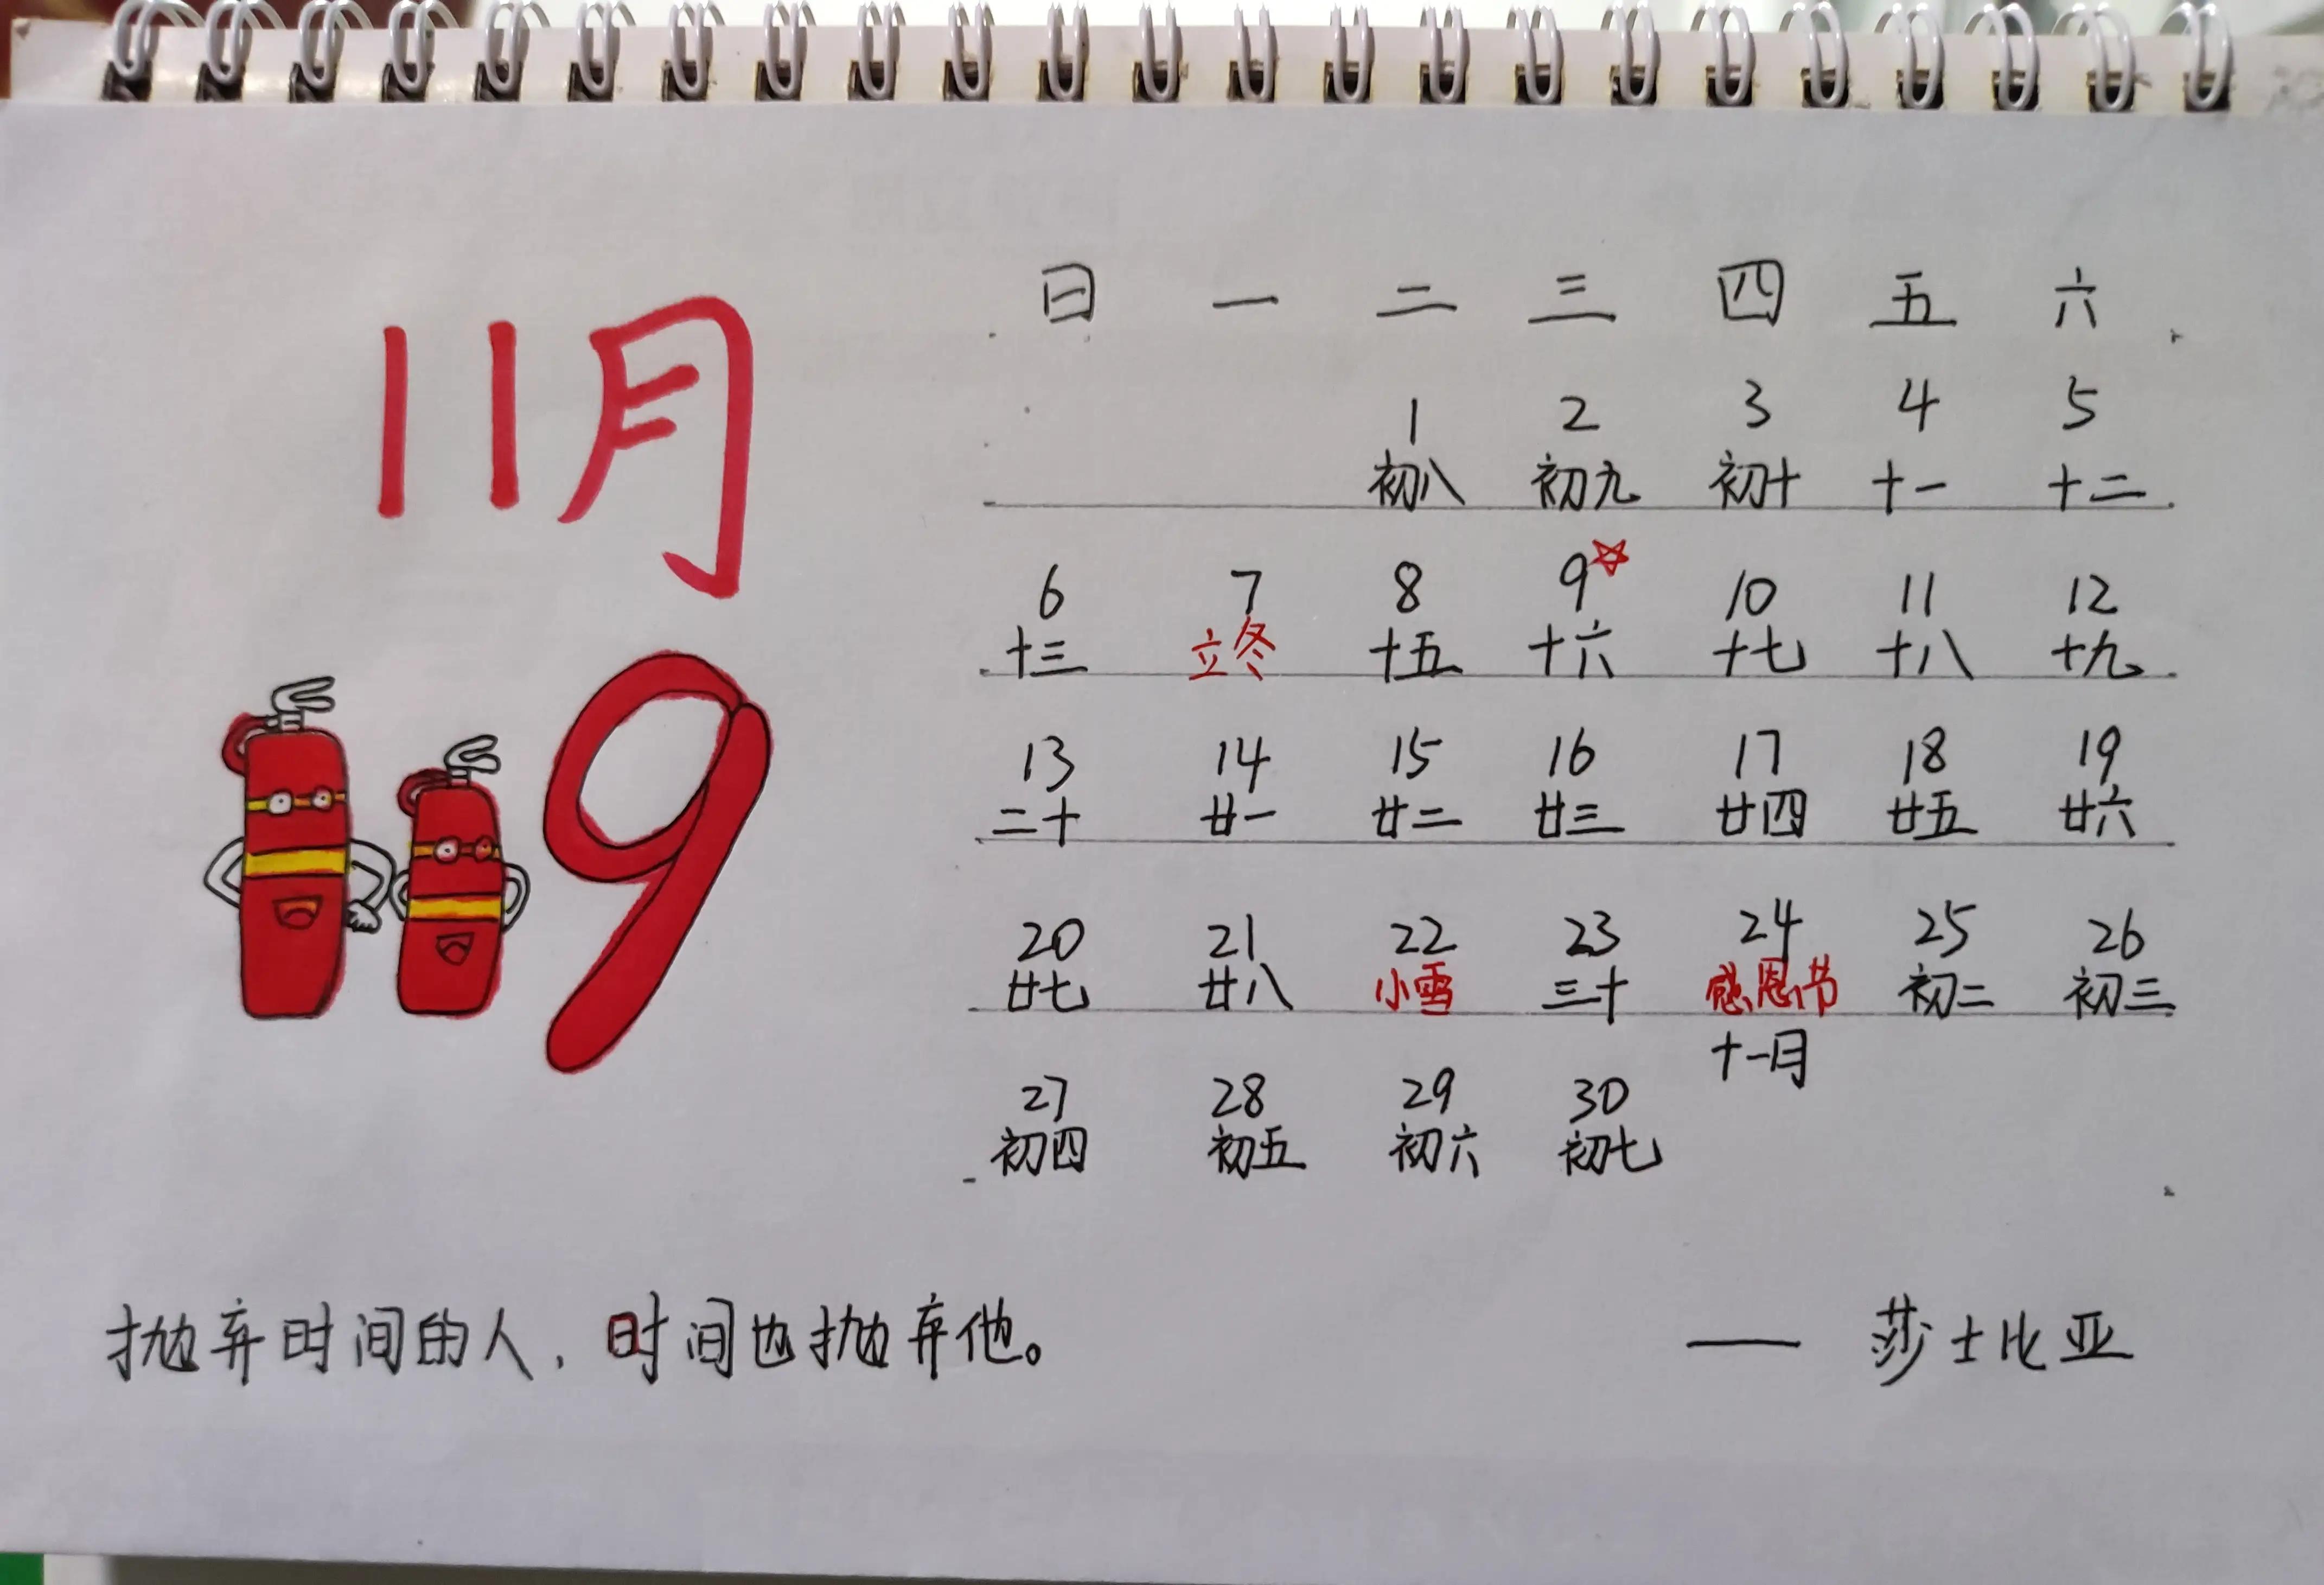 11月
119
日 一 二 三 四 五 六
1 2 3 4 5
初八 初九 初十 十一 十二
6 7 8 9 10 11 12
十三 立冬 十五 十六 十七 十八 十九
13 14 15 16 17 18 19
二十 廿一 廿二 廿三 廿四 廿五 廿六
20 21 22 23 24 25 26
廿七 廿八 小雪 三十 感恩节 初二 初三
十一月
27 28 29 30
初四 初五 初六 初七
抛弃时间的人，时间也抛弃他。
—— 莎士比亚